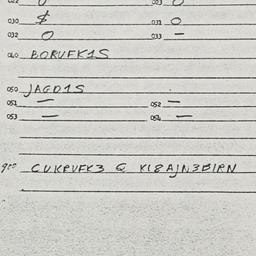 022 0 023 0
030 $ 031 0
032 0 033 —
040 BORUFK1S
050 JAGD1S
051 — 052 —
053 — 054 —
900 CUKRUFK3 Q K18AJN3B1RN